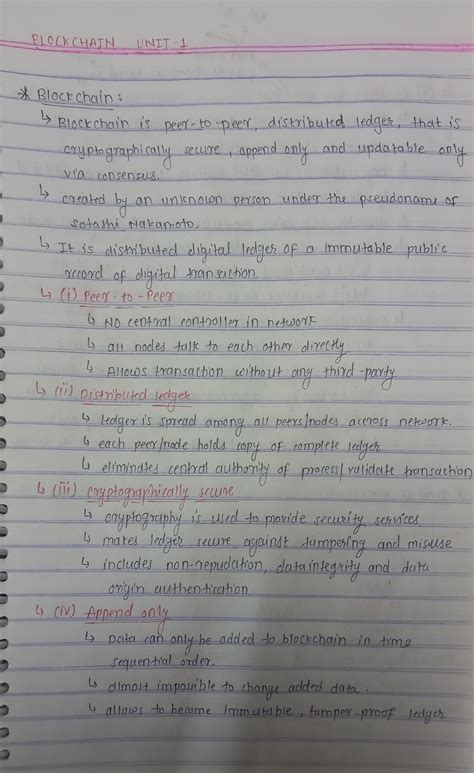 BLOCKCHAIN UNIT-1
* Blockchain:
↳ Blockchain is peer-to-peer, distributed ledger, that is
cryptographically secure, append only and updatable only
via consensus.
↳ created by an unknown person under the pseudoname of
Satashi Nakamoto.
↳ It is distributed digital ledger of a immutable public
record of digital transaction.
↳ (i) Peer-to-Peer
↳ No central controller in network
↳ all nodes talk to each other directly
↳ Allows transaction without any third-party
↳ (ii) Distributed ledger
↳ ledger is spread among all peers/nodes accross network.
↳ each peer/node holds copy of complete ledger
↳ eliminates central authority of process/validate transaction
↳ (iii) cryptographically secure
↳ cryptography is used to provide security services.
↳ makes ledger secure against tampering and misuse
↳ includes non-repudation, data integrity and data
origin authentication.
↳ (iv) Append only
↳ Data can only be added to blockchain in time
sequential order.
↳ almost impossible to change added data.
↳ allows to become immutable, tamper-proof ledger